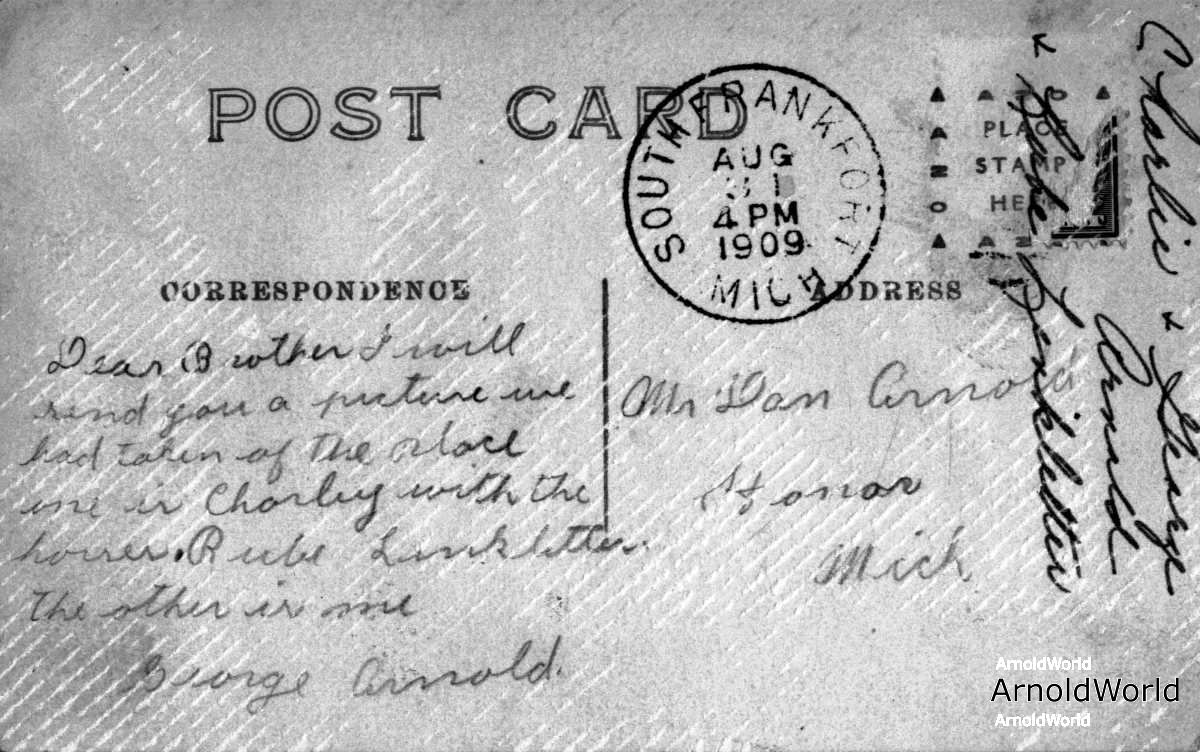 POST CARD
SOUTH FRANKFORT
AUG
31
4 PM
1909
MICH
PLACE
STAMP
HERE
CORRESPONDENCE
ADDRESS
Dear Brother I will
send you a picture we
had taken of the place
one is Charley with the
horses. Rube Linkletter
the other is me
George Arnold.
Mr Dan Arnold
Honor
Mich
Charlie & George
Arnold
& Rube Linkletter
ArnoldWorld
ArnoldWorld
ArnoldWorld